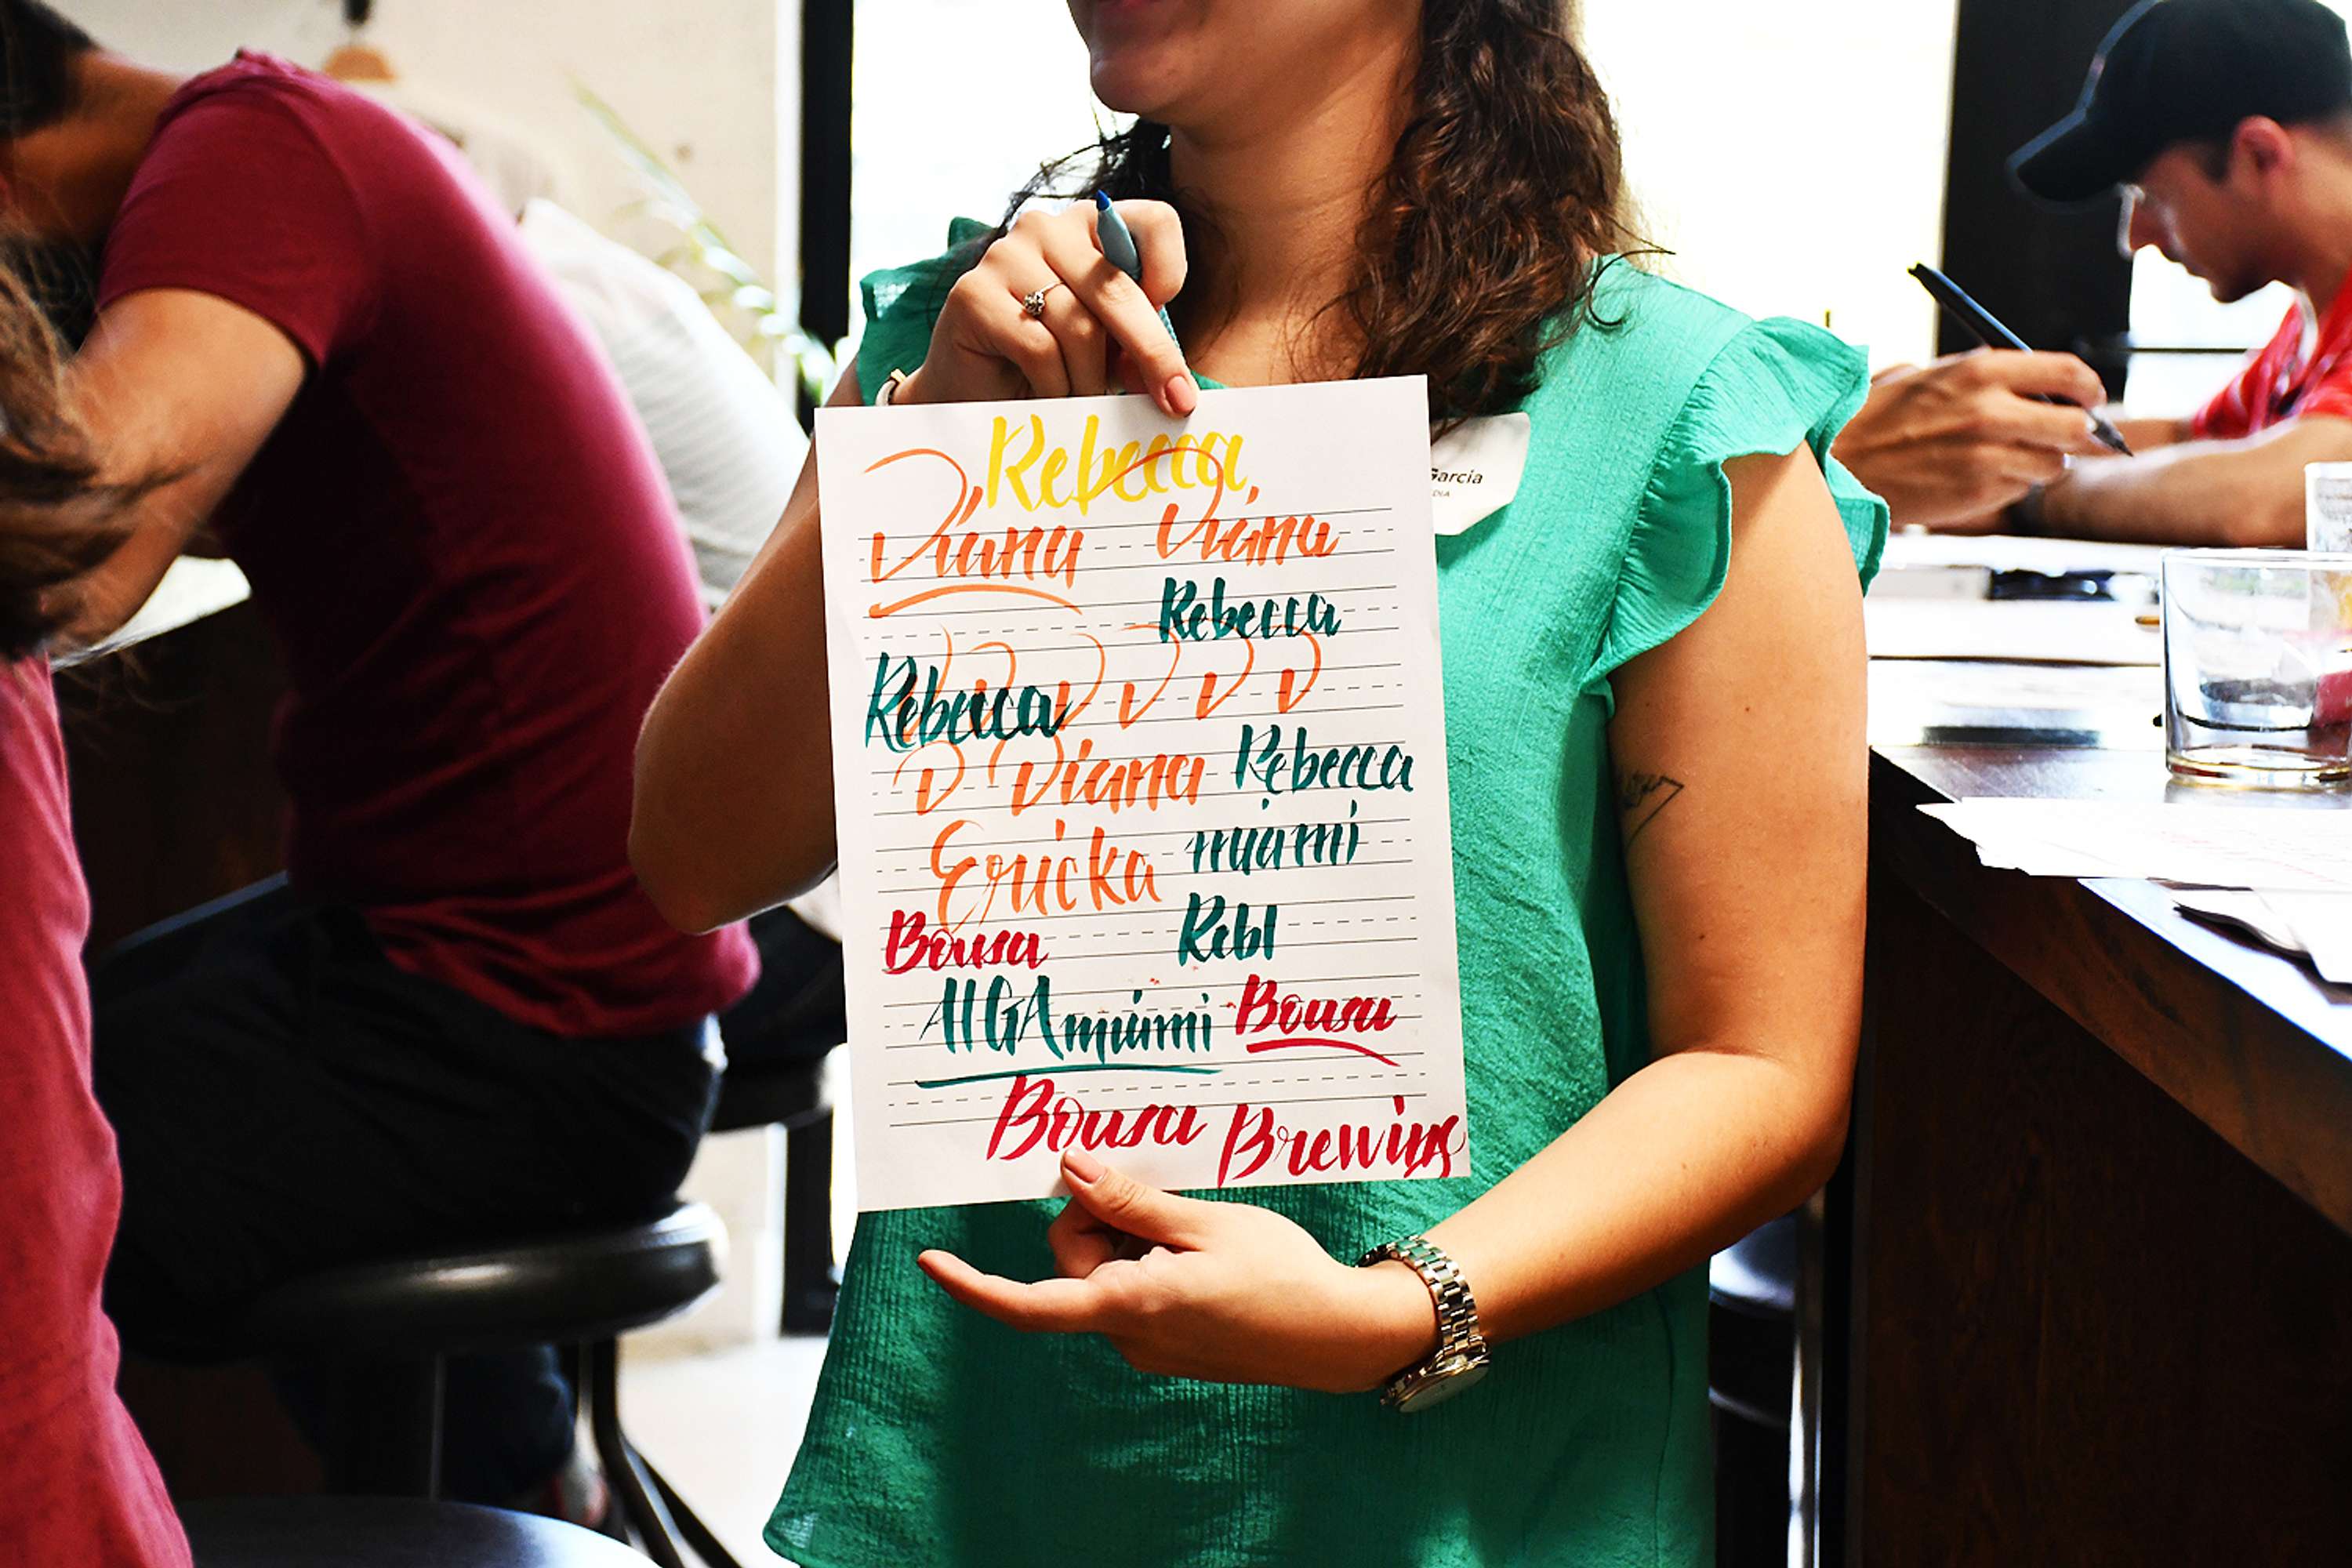 Rebecca
Diana Diana
Rebecca
Rebecca D D D D D
D Diana Rebecca
Ericka miami
Bousa Rebl
AIGAmiami Bousa
Bousa Brewing
Garcia